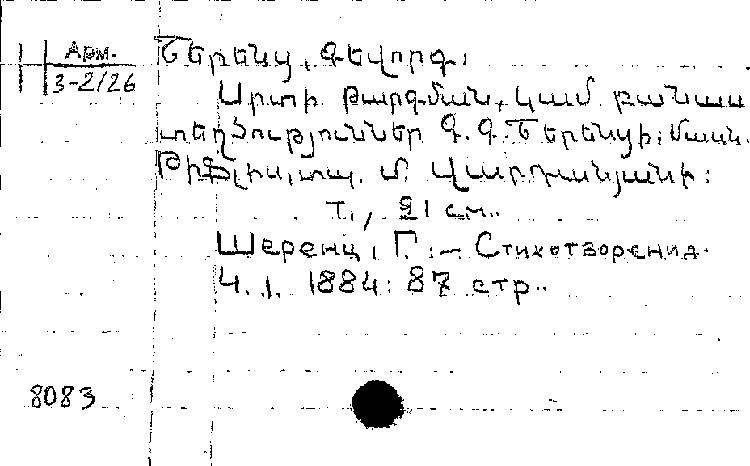 Арм.
3-2/26
Շերենց, Գևորգ։
Սրտի թարգման, կամ բանաս
տեղծություններ Գ. Գ. Շերենցի։ մասն.
Թիֆլիս, տպ. Մ. Վարդանյանի։
T., 21 см.
Шеренц, Г. — Стихотворения.
Ч. 1. 1884: 87 стр.
8083